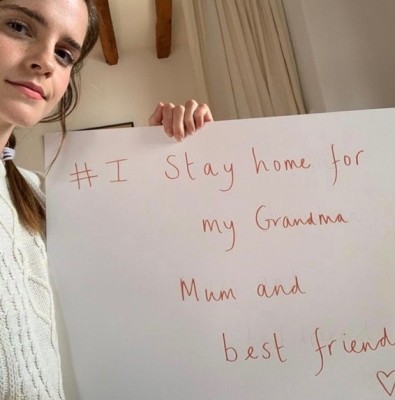 #I Stay home for
my Grandma
Mum and
best friend